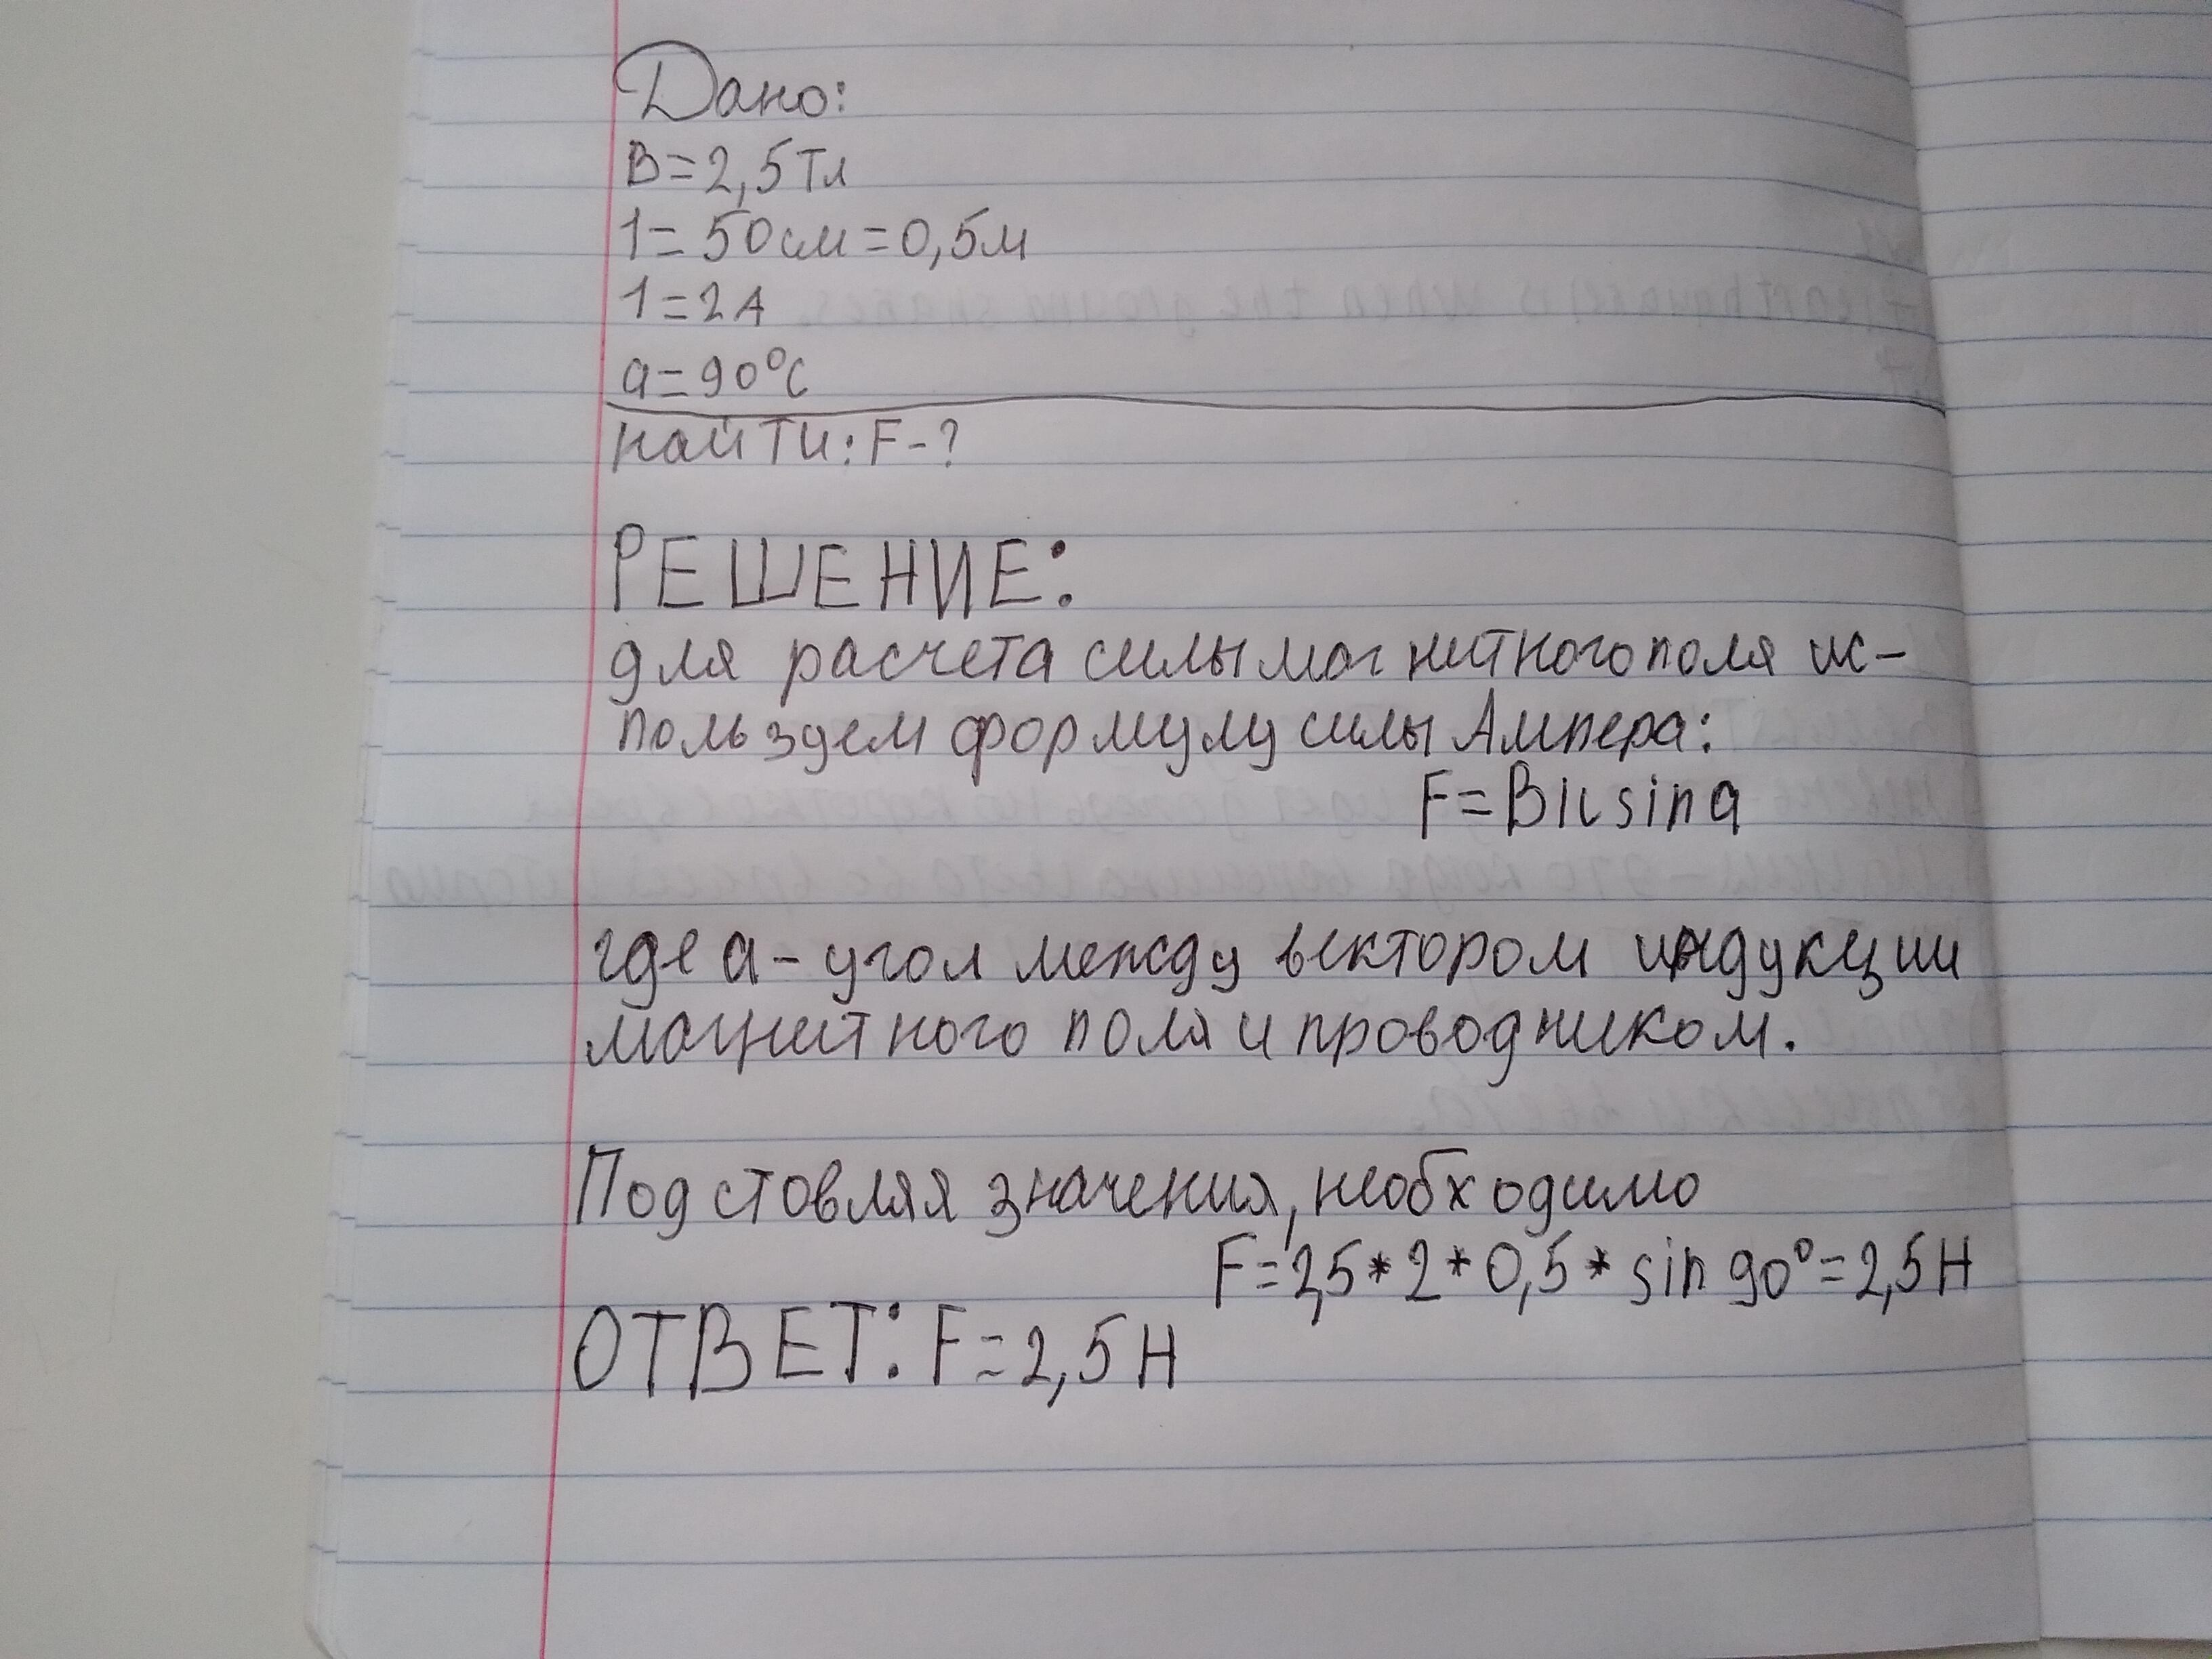 Дано:
B=2,5Тл
1=50см=0,5м
1=2A
a=90°C
найти: F-?
РЕШЕНИЕ:
для расчета силы магнитного поля ис-
пользуем формулу силы Ампера:
F=BIL sin a
где a-угол между вектором индукции
магнитного поля и проводником.
Подстовляя значения, необходимо
F=2,5*2*0,5*sin90°=2,5H
ОТВЕТ: F=2,5H